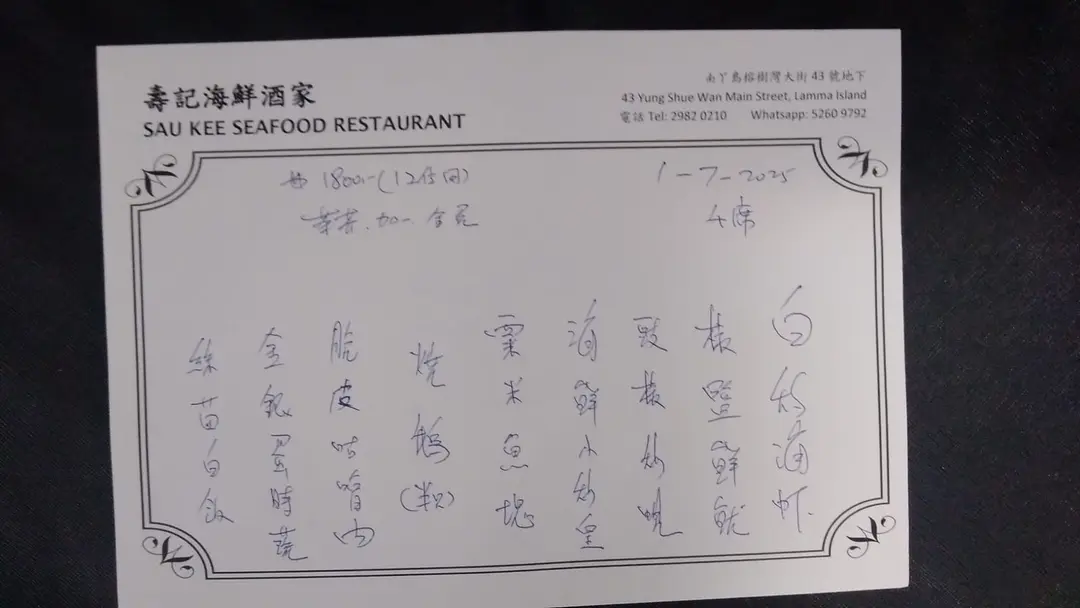 壽記海鮮酒家
SAU KEE SEAFOOD RESTAURANT
南丫島榕樹灣大街 43 號地下
43 Yung Shue Wan Main Street, Lamma Island
電話 Tel: 2982 0210 Whatsapp: 5260 9792
1800/-(12位用)
茶芥.加一.全免
1-7-2025
4席
白灼海虾
椒鹽鮮魷
豉椒炒蜆
海鮮小炒皇
粟米魚塊
燒鵝(半只)
脆皮咕嚕肉
金銀蛋時蔬
絲苗白飯